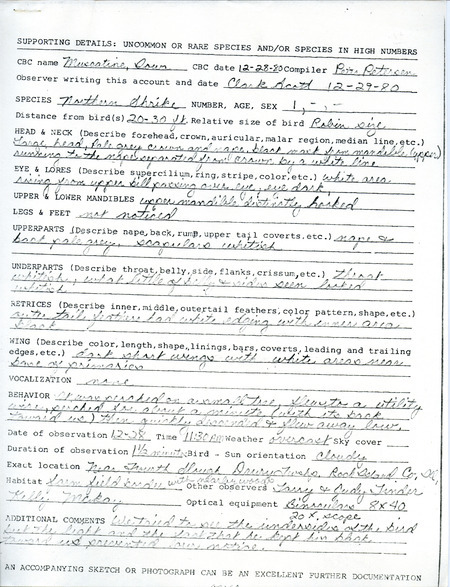 SUPPORTING DETAILS: UNCOMMON OR RARE SPECIES AND/OR SPECIES IN HIGH NUMBERS
CBC name Muscatine, Iowa CBC date 12-28-80 Compiler Pete Petersen
Observer writing this account and date Clark Scott 12-29-80
SPECIES Northern Shrike NUMBER, AGE, SEX 1,-,-
Distance from bird(s) 20-30 ft Relative size of bird Robin size
HEAD & NECK (Describe forehead, crown, auricular, malar region, median line, etc.)
Large head, Pale grey crown and nape, black mask from mandible (upper)
running to the nape separated from crown by a white line
EYE & LORES (Describe supercilium, ring, stripe, color, etc.) white area
rising from upper bill passing over eye, eye dark
UPPER & LOWER MANDIBLES upper mandible distinctly hooked
LEGS & FEET not noticed
UPPERPARTS (Describe nape, back, rump, upper tail coverts, etc.) nape &
back pale grey, scapulars whitish
UNDERPARTS (Describe throat, belly, side, flanks, crissum, etc.) throat
whitish, what little of belly & sides seen looked
whitish
RETRICES (Describe inner, middle, outertail feathers, color pattern, shape, etc.)
outer tail feathers had white edging with inner area
black
WING (Describe color, length, shape, linings, bars, coverts, leading and trailing
edges, etc.) dark short wings with white areas near
base of primaries
VOCALIZATION none
BEHAVIOR It was perched on a small tree, flew to a utility
wire, perched for about a minute (with its back
toward us) then quickly descended & flew away low.
Date of observation 12-28 Time 11:30 AM Weather overcast Sky cover
Duration of observation 1½ minutes Bird - Sun orientation cloudy
Exact location Near Fourth Slough Drury Twnshp. Rock Island Co., Ill.
Habitat Farm field border with nearby woods Other observers Larry & Judy Linder
Kelly McKay Optical equipment Binoculars 8 x 40
20 x scope
ADDITIONAL COMMENTS We tried to see the undersides of the bird
but the light and the fact that he kept his back
toward us prevented our notice.
AN ACCOMPANYING SKETCH OR PHOTOGRAPH CAN BE AN EXCELLENT FURTHER DOCUMENTATION